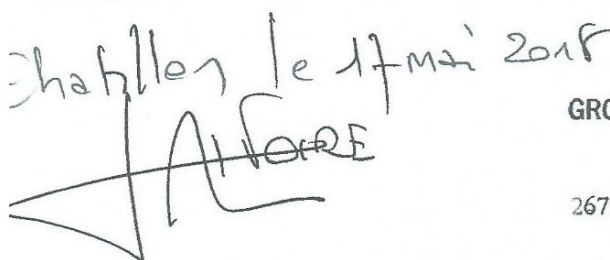 Chatillon le 17 mai 2018
GRO
267